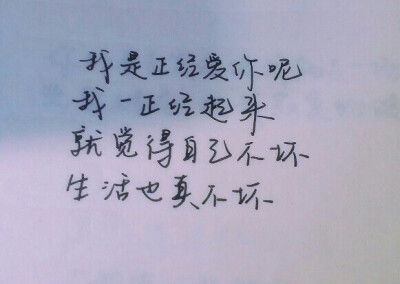 我是正经爱你呢
我一正经起来
就觉得自己不坏
生活也真不坏